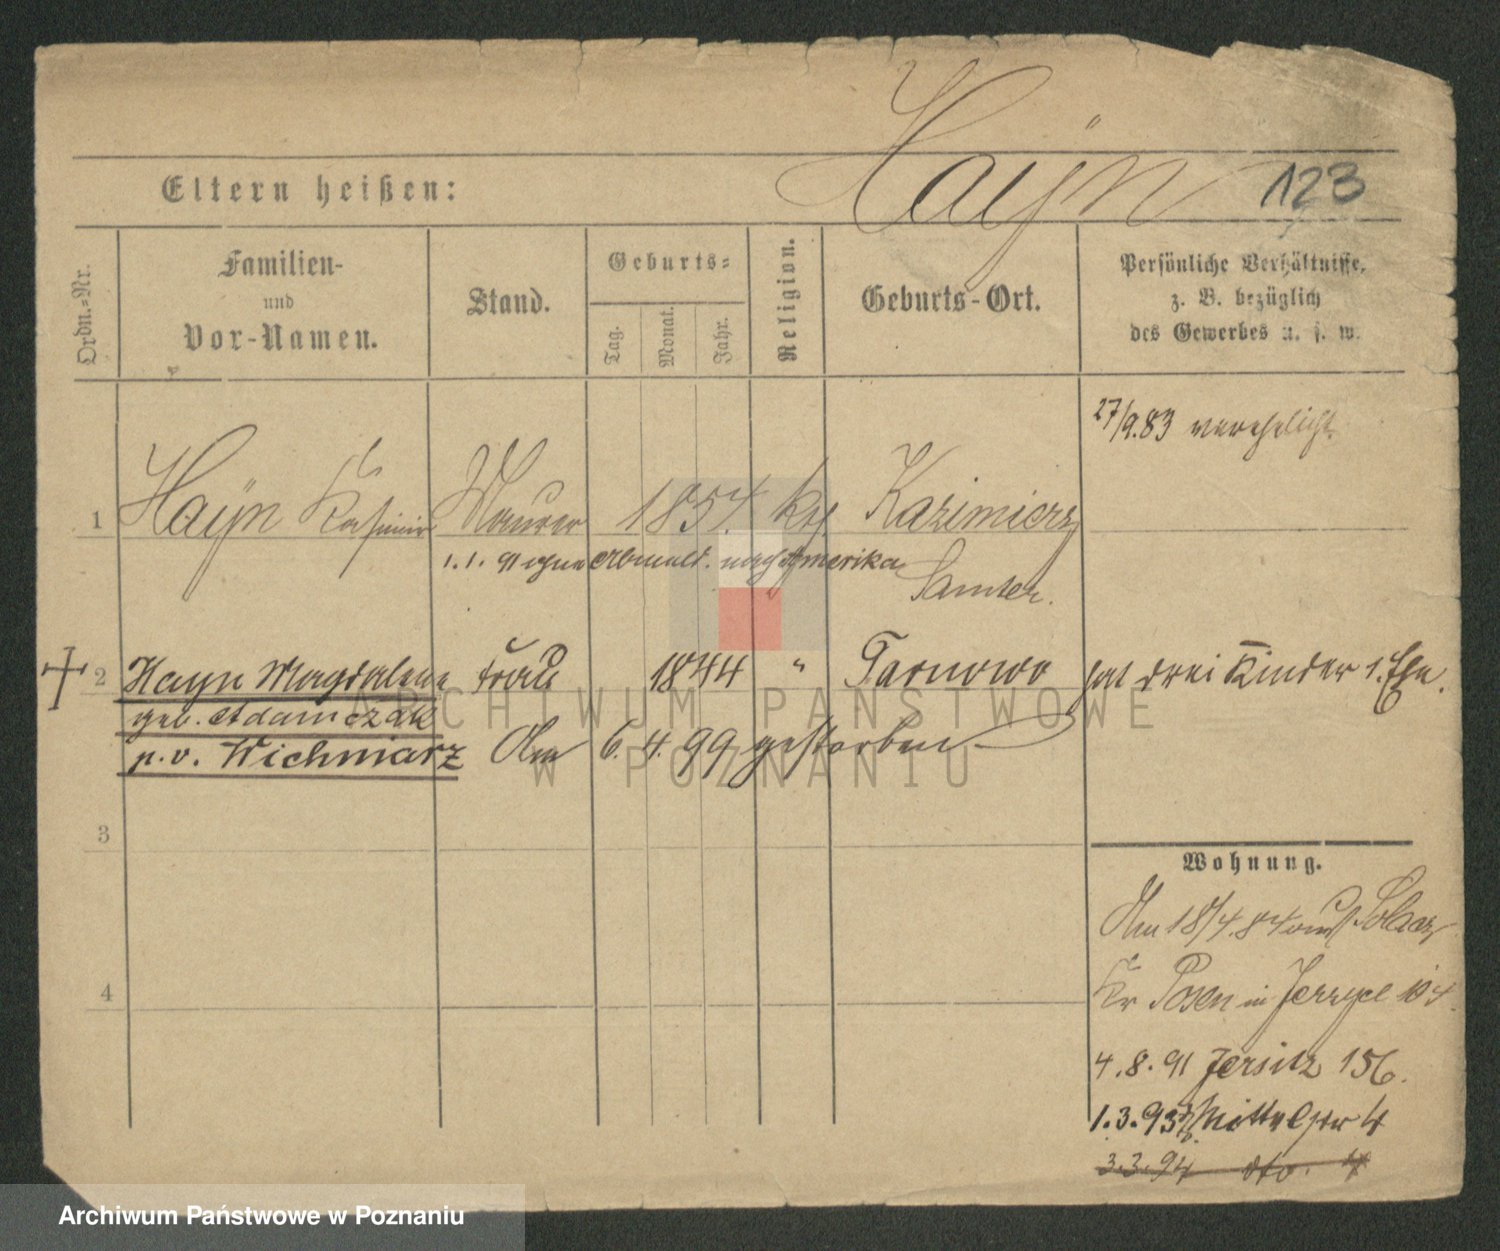 Hayn 123
Eltern heißen:
Ordn.-Nr.
Familien-
und
Vor-Namen.
Stand.
Geburts-
Tag.
Monat.
Jahr.
Religion.
Geburts-Ort.
Persönliche Verhältnisse,
z. B. bezüglich
des Gewerbes u. s. w.
27/9.83 verehelicht.
1 Hayn Kasimir Maurer 1854. kth. Kazimierz
1.1.91 ohne Abmeld. nach Amerika
Samter.
2 Hayn Magdalene Frau 1844 " Tarnowo hat drei Kinder 1. Ehe.
geb. Adamczak
p. v. Wichniarz Am 6. 4. 99 gestorben
3
4
Wohnung.
Am 18/4.84 aus Solacz
Kr Posen in Jerzyce 104.
4.8.91 Jersitz 156.
1.3.93 Mittelstr 4
3.3.94 dto. 4
ARCHIWUM PAŃSTWOWE
W POZNANIU
Archiwum Państwowe w Poznaniu